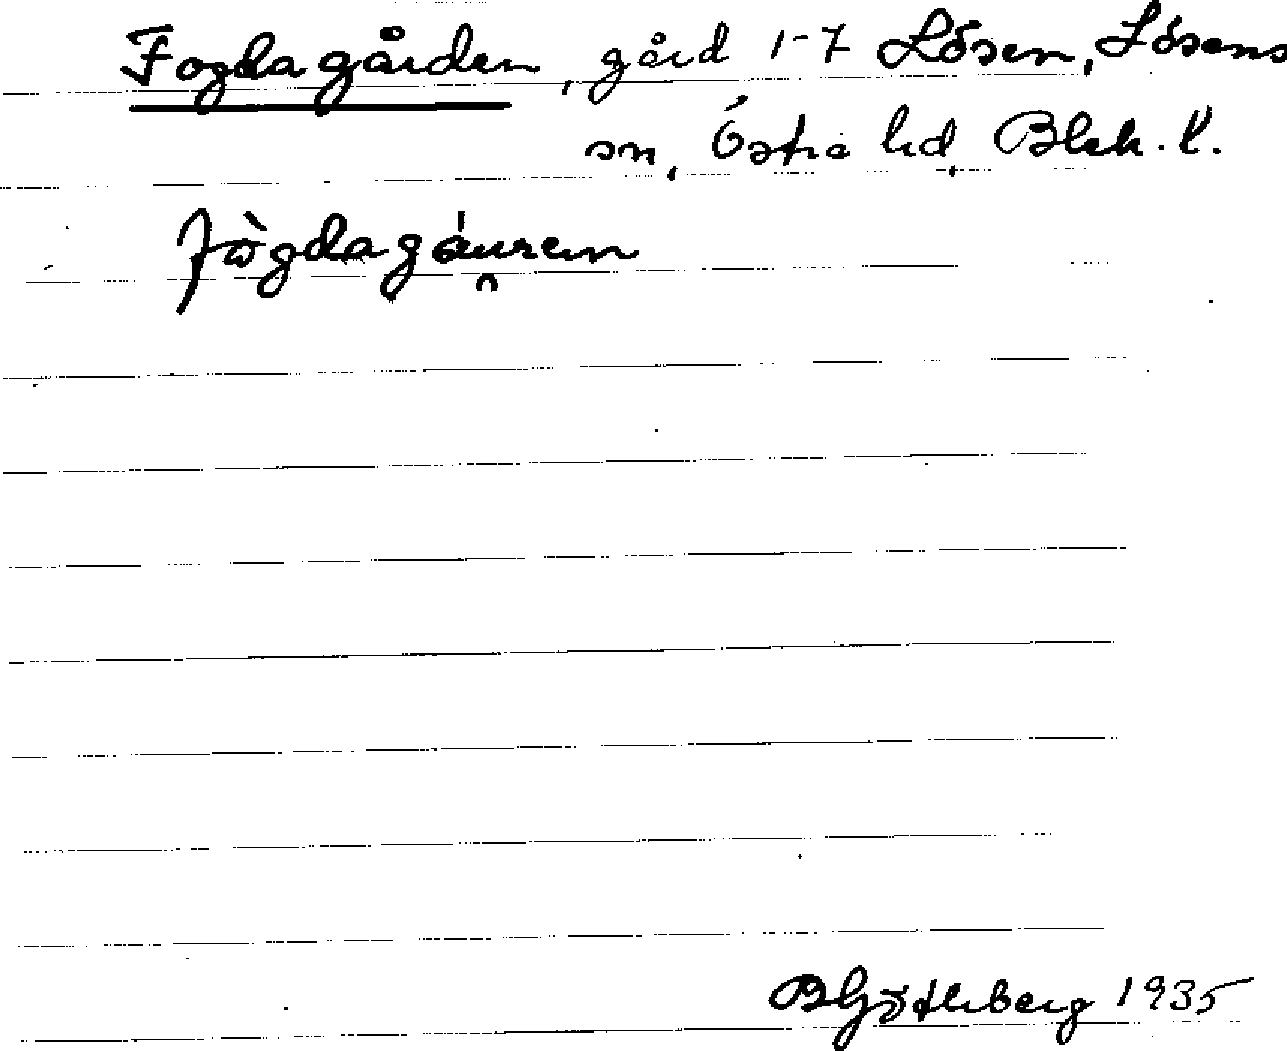 Fogdagården, gård 1-7 Lösen, Lösens
sn, Östra hd, Blek. l.
fògdagáu̯ren
B Götlberg 1935